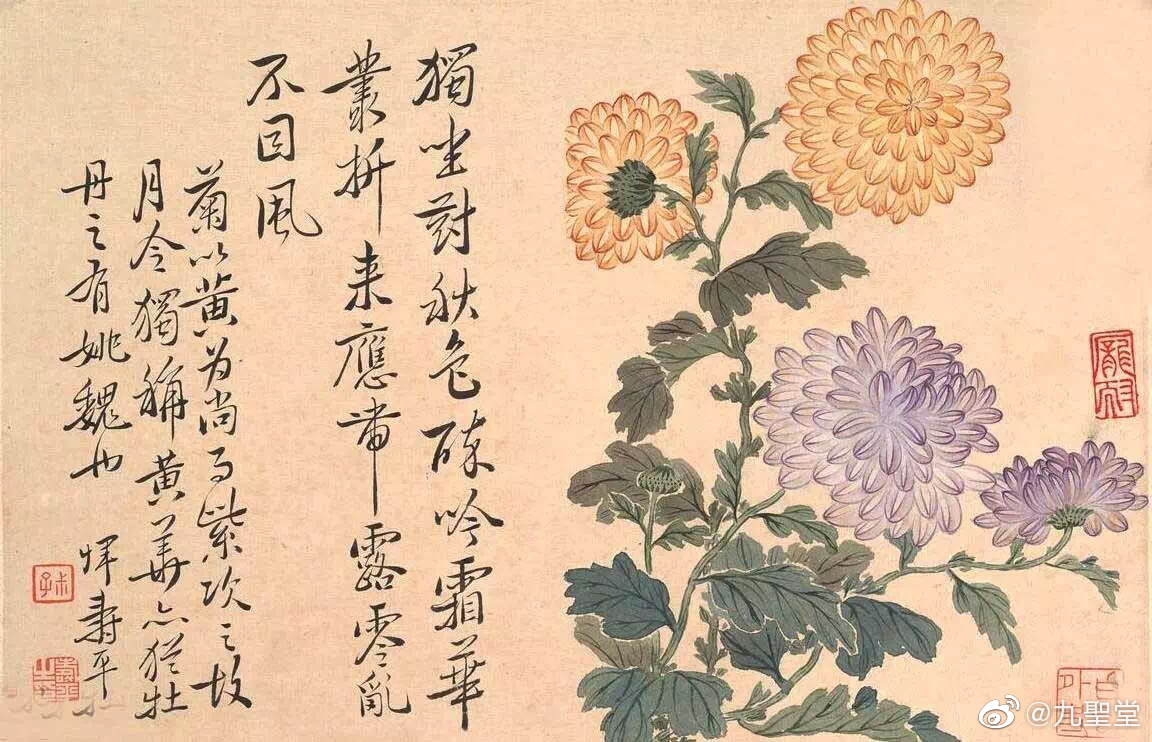 獨坐對秋色醉吟霜華
叢折来應帶露零亂
不因風
菊以黄为尚而紫次之故
月令獨稱黄華亦猶牡
丹之有姚魏也
惲壽平
@九聖堂